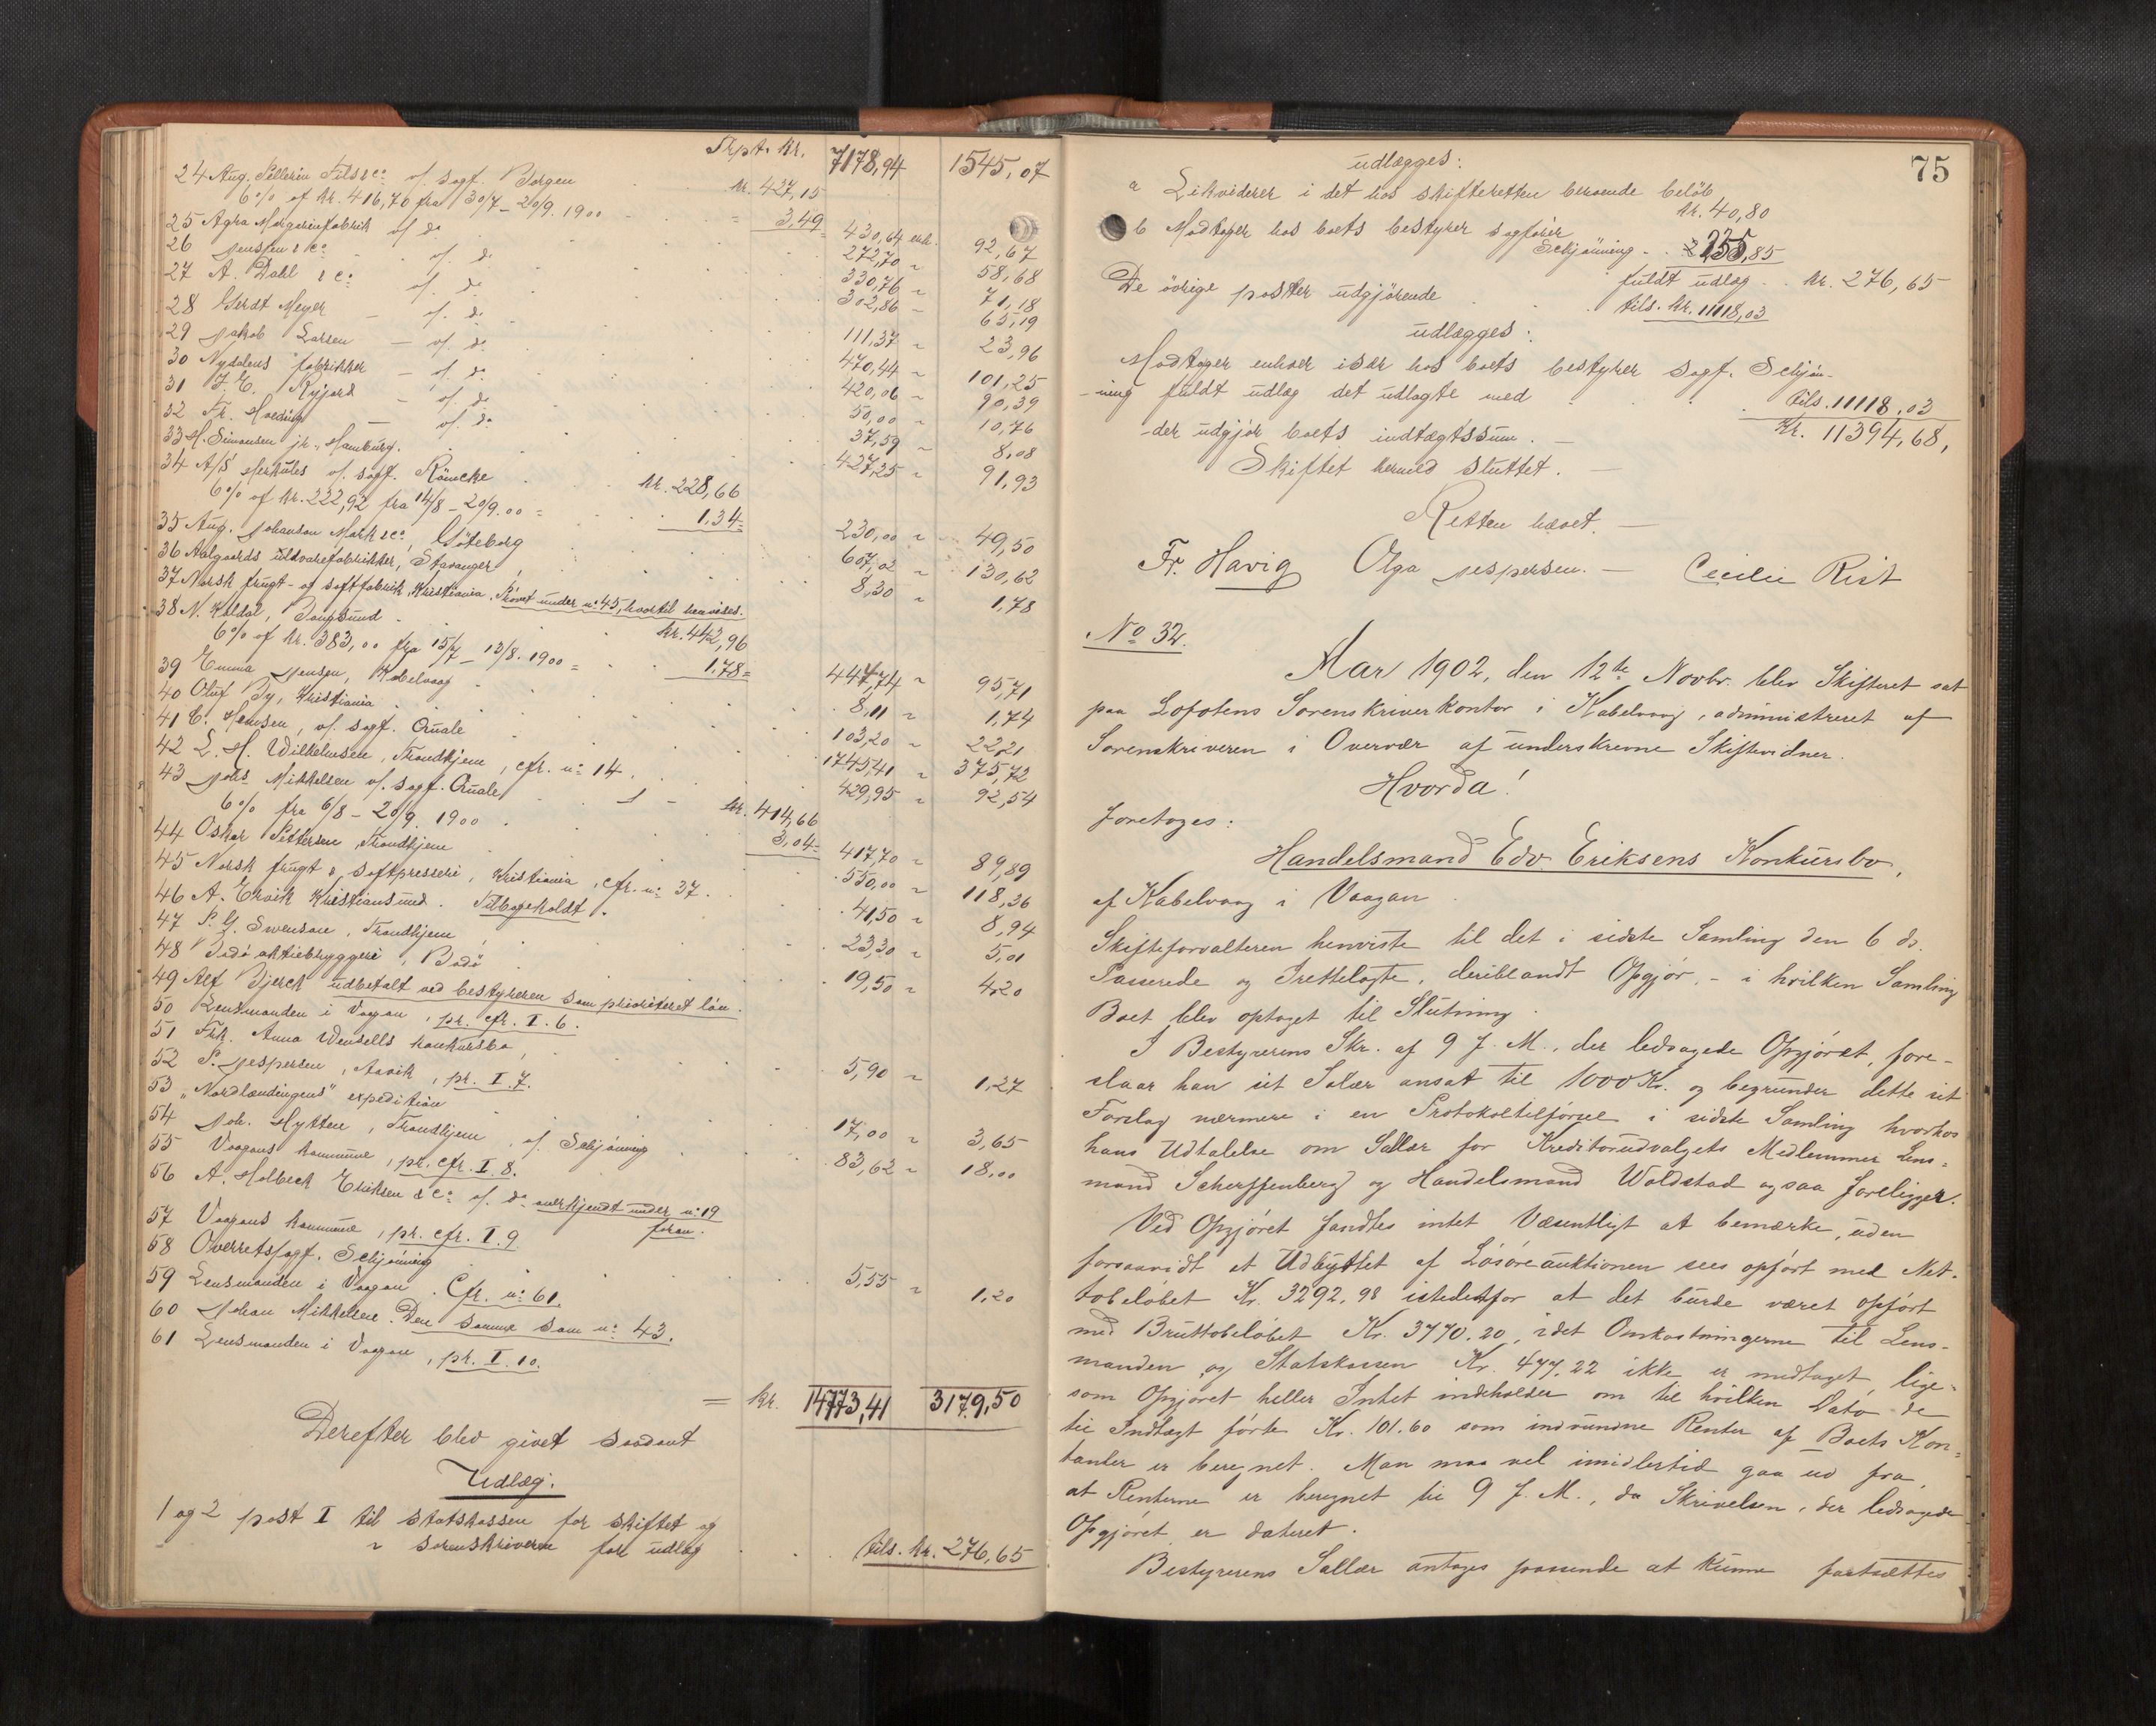 Trpt. Kr. 7178,94 1545,07
24 Aug. Pellerin Fils & Co. v/ sagf. Borgen kr. 427,15
6% af kr. 416,76 fra 30/7 – 20/9. 1900 = 3,49 = 430,64 erk. 92,67
25 Agra Margarinfabrik v/ do 272,70 " 58,68
26 Jenssen & Co. v/ do 330,76 " 71,18
27 A. Dahl & Co. v/ do 302,86 " 65,19
28 Gerdt Meyer – v/ do 111,37 " 23,96
29 Jakob Larsen – v/ do 470,44 " 101,25
30 Nydalens fabrikker – v/ do 420,06 " 90,39
31 J. E. Kyjord – v/ do 50,00 " 10,76
32 Fr. Harding – v/ do 37,59 " 8,08
33 M. Simonsen jr., Hamburg. 427,25 " 91,93
34 A/S Herkules v/ sagf. Röncke kr. 228,66
6% af kr. 222,92 fra 14/8 – 20/9. 00 = 1,34 = 230,00 " 49,50
35 Aug. Johanson Mark & Co., Göteborg 607,02 " 130,62
36 Aalgaards uldvarefabrikker, Stavanger 8,30 " 1,78
37 Norsk frugt- og saftfabrik, Kristiania. Prövet under no 45, hvortil henvises.
38 N. Koldal, Bangsund kr. 442,96
6% af kr. 383,00 fra 15/7 – 13/8. 1900 = 1,78 = 444,74 " 95,71
39 Emma Jensen, Kabelvaag 8,11 " 1,74
40 Oluf By, Kristiania 103,20 " 22,21
41 C. Hansen, v/ sagf. Quale 1745,41 " 375,72
42 L. H. Wilhelmsen, Trondhjem, cfr. no 14. 429,95 " 92,54
43 Johs Mikkelsen v/ sagf. Quale kr. 414,66
6% fra 6/8 – 20/9. 1900 3,04 = 417,70 " 89,89
44 Oskar Pettersen, Trondhjem 550,00 " 118,36
45 Norsk frugt & saftpresseri, Kristiania, cfr. no 37. 41,50 " 8,94
46 A. Ervik Kristiansund. Tilbageholdt.
47 P. G. Svenson, Trondhjem 23,30 " 5,01
48 Bodö aktiebryggeri, Bodö 19,50 " 4,20
49 Alf Bjerck udbetalt ved bestyreren som prioriteret lön.
50 Lensmanden i Vaagan, pr. cfr. I. 6.
51 Frk. Anna Wensells konkursbo, 5,90 " 1,27
52 P. Jespersen, Aavik, pr. I. 7.
53 "Nordlændingens" expedition 17,00 " 3,65
54 Joh. Hytten, Trondhjem, v/ Schjönning 83,62 " 18,00
55 Vaagans kommune, pr. cfr. I. 8.
56 A. Holbeck Eriksen & Co. v/ do anerkjendt under no 19
foran.
57 Vaagans kommune, pr. cfr. I. 9
58 Overretssagf. Schjönning 5,55 " 1,20
59 Lensmanden i Vaagan. Cfr. no 61.
60 Johan Mikkelsen. Den samme som no 43.
61 Lensmanden i Vaagan, pr. I. 10.
= kr. 14773,41 3179,50
Derefter blev givet saadant
Udlæg:
1 og 2 post I til statskassen for skiftet og
" sorenskriveren for udlæg tils. kr. 276,65
75
udlægges:
a Likviderer i det hos skifteretten beroende belöb
kr. 40,80
b Modtager hos boets bestyrer sagförer
Schjönning - 235,85
fuldt udlæg . . kr. 276,65
De övrige poster udgjörende tils. kr. 11118,03
udlægges:
Modtager enhver især hos boets bestyrer sagf. Schjön-
ning fuldt udlæg det udlagte med tils. 11118.03
der udgjör boets indtægtssum. – Kr. 11394,68,
Skiftet hermed sluttet. –
Retten hævet. –
Fr. Havig Olga Jespersen. – Cecilie Rist
No 32.
Aar 1902, den 12te Novbr. blev Skifteret sat
paa Lofotens Sorenskriverkontor i Kabelvaag, administreret af
Sorenskriveren i Overvær af underskrevne Skiftevidner.
Hvorda!
foretoges:
Handelsmand Edv. Eriksens Konkursbo,
af Kabelvaag i Vaagan.
Skifteforvalteren henviste til det i sidste Samling den 6 ds.
Passerede og Irettelagte, deriblandt Opgjör, – i hvilken Samling
Boet blev optaget til Slutning.
I Bestyrerens Skr. af 9 f. M., der ledsagede Opgjöret, fore-
slaar han sit Salær ansat til 1000 Kr. og begrunder dette sit
Forslag nærmere i en Protokoltilförsel i sidste Samling hvorhos
hans Udtalelse om Sallær for Kreditorudvalgets Medlemmer Lens-
mand Scherffenberg og Handelsmand Woldstad ogsaa foreligger.
Ved Opgjöret fandtes intet Væsentligt at bemærke, uden
forsaavidt at Udbyttet af Lösöreauktionen sees opfört med Net-
tobelöbet Kr. 3292.98 istedenfor at det burde været opfört
med Bruttobelöbet Kr. 3770.20, idet Omkostningerne til Lens-
manden og Statskassen Kr. 477.22 ikke er medtaget, lige-
som Opgjöret heller Intet indeholder om til hvilken Dato de
til Indtægt förte Kr. 101.60 som indvundne Renter af Boets Kon-
tanter er beregnet. Man maa vel imidlertid gaa ud fra,
at Renterne er beregnet til 9 f. M., da Skrivelsen, der ledsagede
Opgjöret er dateret.
Bestyrerens Sallær antages passende at kunne fastsættes